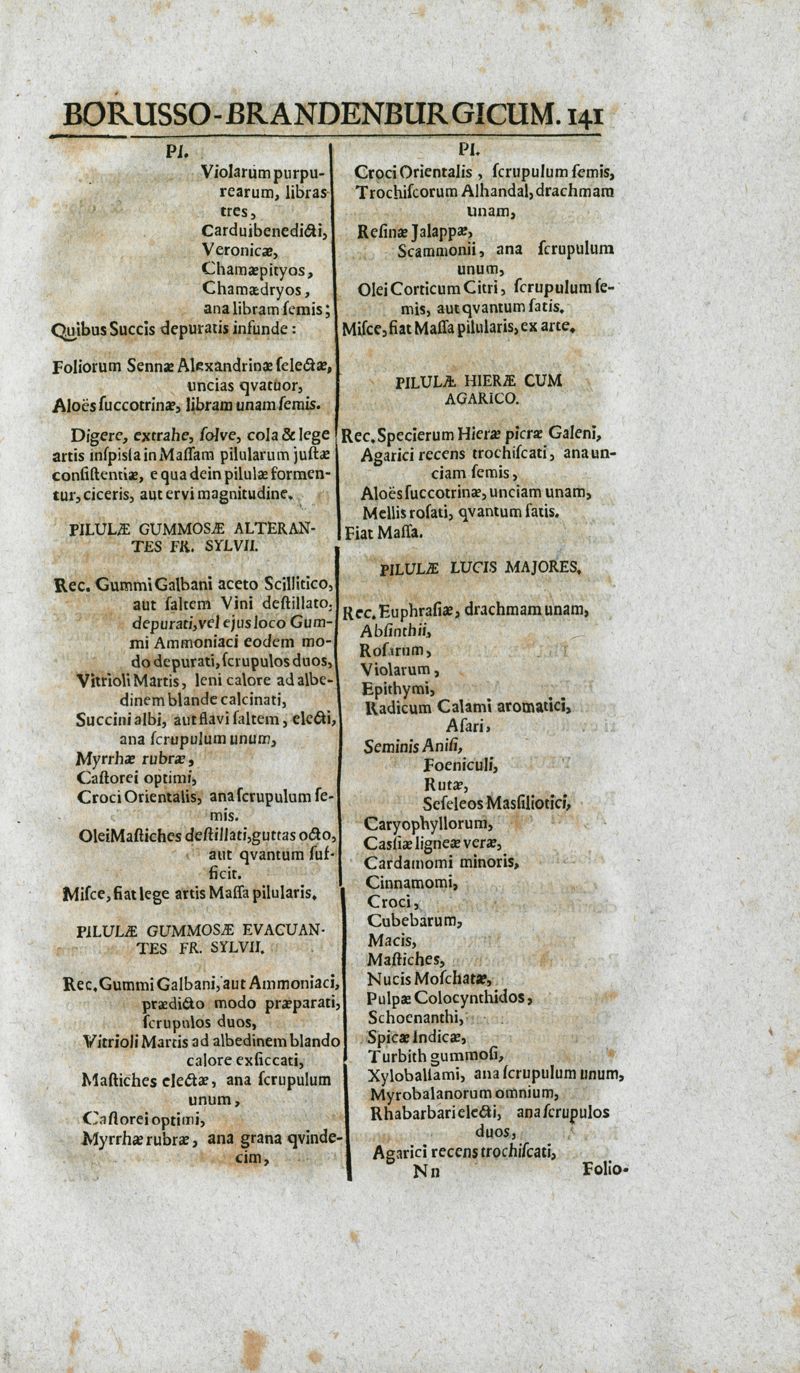 BORUSSO-BRANDENBURGICUM. 141
Pl.
Violarum purpu-
rearum, libras
tres,
Carduibenedicti,
Veronicæ,
Chamæpityos,
Chamædryos,
ana libram ſemis;
Quibus Succis depuratis infunde:
Foliorum Sennæ Alexandrinæ ſelectæ,
uncias qvatuor,
Aloës ſuccotrinæ, libram unam ſemis.
Digere, extrahe, ſolve, cola & lege
artis inſpiſſa in Maſſam pilularum juſtæ
conſiſtentiæ, e qua dein pilulæ formen-
tur, ciceris, aut ervi magnitudine.
PILULÆ GUMMOSÆ ALTERAN-
TES FR. SYLVII.
Rec. Gummi Galbani aceto Scillitico,
aut ſaltem Vini deſtillato,
depurati, vel ejus loco Gum-
mi Ammoniaci eodem mo-
do depurati, ſcrupulos duos,
Vitrioli Martis, leni calore ad albe-
dinem blande calcinati,
Succini albi, aut flavi ſaltem, electi,
ana ſcrupulum unum,
Myrrhæ rubræ,
Caſtorei optimi,
Croci Orientalis, ana ſcrupulum ſe-
mis.
Olei Maſtiches deſtillati, guttas octo,
aut qvantum ſuf-
ficit.
Miſce, fiat lege artis Maſſa pilularis.
PILULÆ GUMMOSÆ EVACUAN-
TES FR. SYLVII.
Rec. Gummi Galbani, aut Ammoniaci,
prædicto modo præparati,
ſcrupulos duos,
Vitrioli Martis ad albedinem blando
calore exſiccati,
Maſtiches electæ, ana ſcrupulum
unum,
Caſtorei optimi,
Myrrhæ rubræ, ana grana qvinde-
cim,
Pl.
Croci Orientalis, ſcrupulum ſemis,
Trochiſcorum Alhandal, drachmam
unam,
Reſinæ Jalappæ,
Scammonii, ana ſcrupulum
unum,
Olei Corticum Citri, ſcrupulum ſe-
mis, aut qvantum ſatis.
Miſce, fiat Maſſa pilularis, ex arte.
PILULÆ HIERÆ CUM
AGARICO.
Rec. Specierum Hieræ picræ Galeni,
Agarici recens trochiſcati, ana un-
ciam ſemis,
Aloës ſuccotrinæ, unciam unam,
Mellis roſati, qvantum ſatis.
Fiat Maſſa.
PILULÆ LUCIS MAJORES.
Rec. Euphraſiæ, drachmam unam,
Abſinthii,
Roſarum,
Violarum,
Epithymi,
Radicum Calami aromatici,
Aſari,
Seminis Aniſi,
Foeniculi,
Rutæ,
Seſeleos Masſiliotici,
Caryophyllorum,
Casſiæ ligneæ veræ,
Cardamomi minoris,
Cinnamomi,
Croci,
Cubebarum,
Macis,
Maſtiches,
Nucis Moſchatæ,
Pulpæ Colocynthidos,
Schoenanthi,
Spicæ Indicæ,
Turbith gummoſi,
Xylobalſami, ana ſcrupulum unum,
Myrobalanorum omnium,
Rhabarbari electi, ana ſcrupulos
duos,
Agarici recens trochiſcati,
Nn Folio-